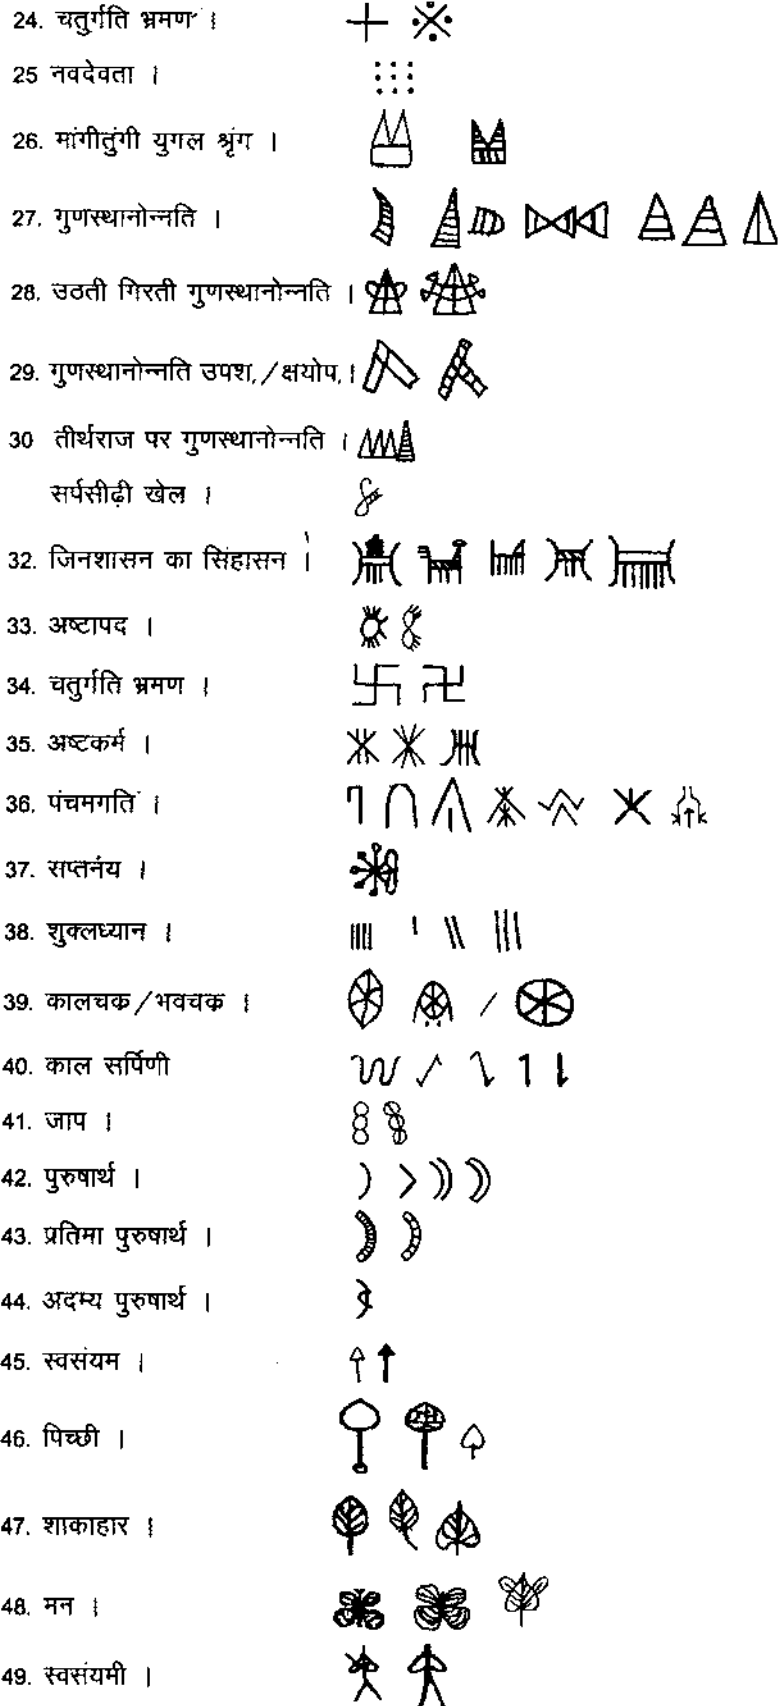 24. चतुर्गति भ्रमण ।
25 नवदेवता ।
26. मांगीतुंगी युगल श्रृंग ।
27. गुणस्थानोन्नति ।
28. उठती गिरती गुणस्थानोन्नति ।
29. गुणस्थानोन्नति उपश./क्षयोप.।
30 तीर्थराज पर गुणस्थानोन्नति ।
सर्पसीढ़ी खेल ।
32. जिनशासन का सिंहासन ।
33. अष्टापद ।
34. चतुर्गति भ्रमण ।
35. अष्टकर्म ।
36. पंचमगति ।
37. सप्तनंय ।
38. शुक्लध्यान ।
39. कालचक्र/भवचक्र ।
40. काल सर्पिणी
41. जाप ।
42. पुरुषार्थ ।
43. प्रतिमा पुरुषार्थ ।
44. अदम्य पुरुषार्थ ।
45. स्वसंयम ।
46. पिच्छी ।
47. शाकाहार ।
48. मन ।
49. स्वसंयमी ।